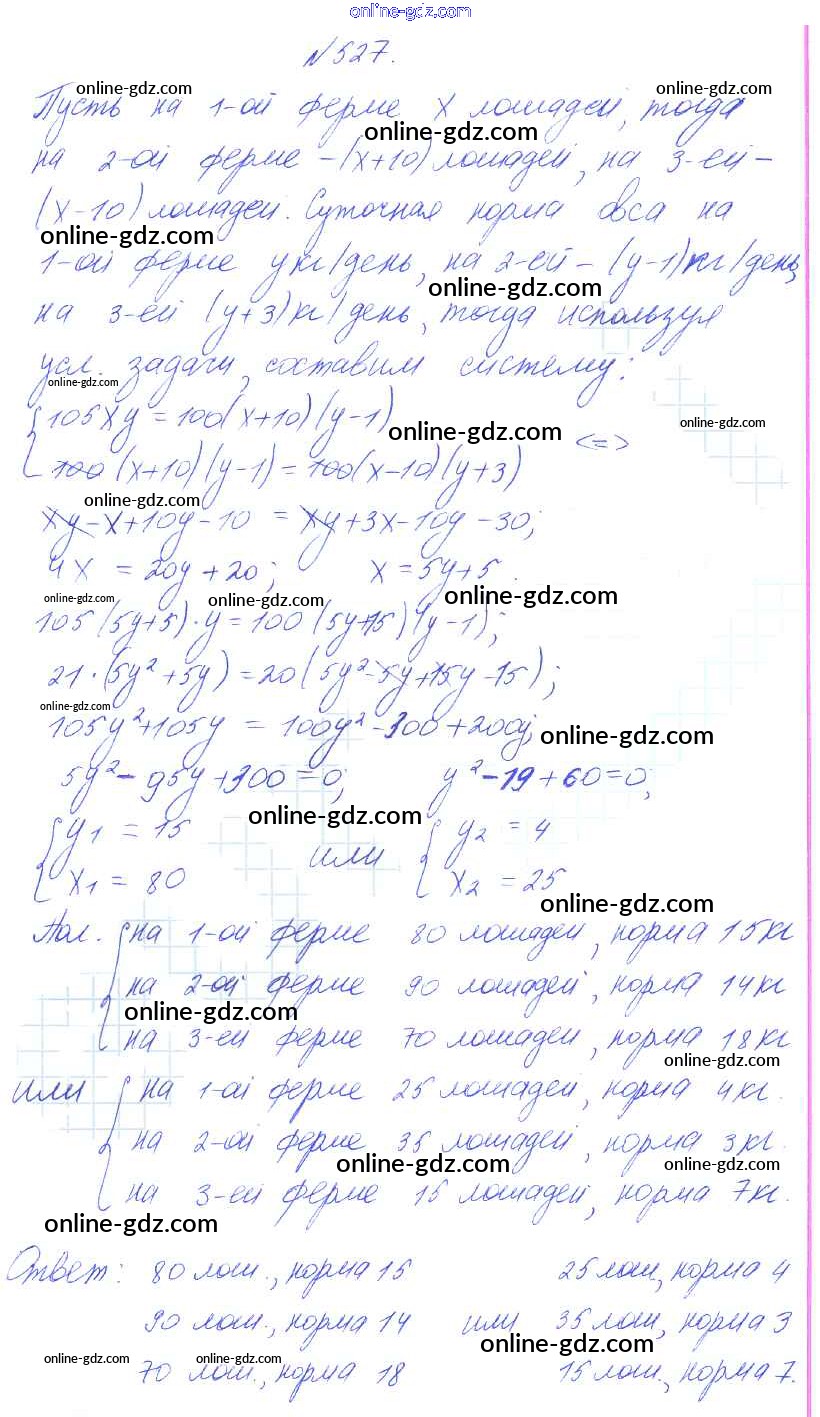 online-gdz.com
№527.
online-gdz.com online-gdz.com
Пусть на 1-ой ферме x лошадей, тогда
online-gdz.com
на 2-ой ферме – (x+10) лошадей, на 3-ей –
(x-10) лошадей. Суточная норма овса на
online-gdz.com
1-ой ферме y кг/день, на 2-ой – (y-1) кг/день,
online-gdz.com
на 3-ей (y+3) кг/день, тогда используя
усл. задачи, составим систему:
online-gdz.com
105xy = 100(x+10)(y-1)
online-gdz.com <=> online-gdz.com
100(x+10)(y-1) = 100(x-10)(y+3)
online-gdz.com
xy-x+10y-10 = xy+3x-10y-30;
4x = 20y+20; x = 5y+5
online-gdz.com online-gdz.com online-gdz.com
105(5y+5)·y = 100(5y+15)(y-1);
21·(5y²+5y) = 20(5y²-5y+15y-15);
online-gdz.com
105y²+105y = 100y²-300+200y;
online-gdz.com
5y²-95y+300=0; y²-19+60=0;
online-gdz.com
y₁ = 15 или y₂ = 4
x₁ = 80 x₂ = 25
online-gdz.com
Пол. на 1-ой ферме 80 лошадей, норма 15 кг
на 2-ой ферме 90 лошадей, норма 14 кг
online-gdz.com
на 3-ей ферме 70 лошадей, норма 18 кг
online-gdz.com
или на 1-ой ферме 25 лошадей, норма 4 кг.
на 2-ой ферме 35 лошадей, норма 3 кг.
online-gdz.com online-gdz.com
на 3-ей ферме 15 лошадей, норма 7 кг.
online-gdz.com
Ответ: 80 лош., норма 15 25 лош, норма 4
90 лош., норма 14 или 35 лош, норма 3
online-gdz.com
online-gdz.com online-gdz.com
70 лош., норма 18 15 лош., норма 7.